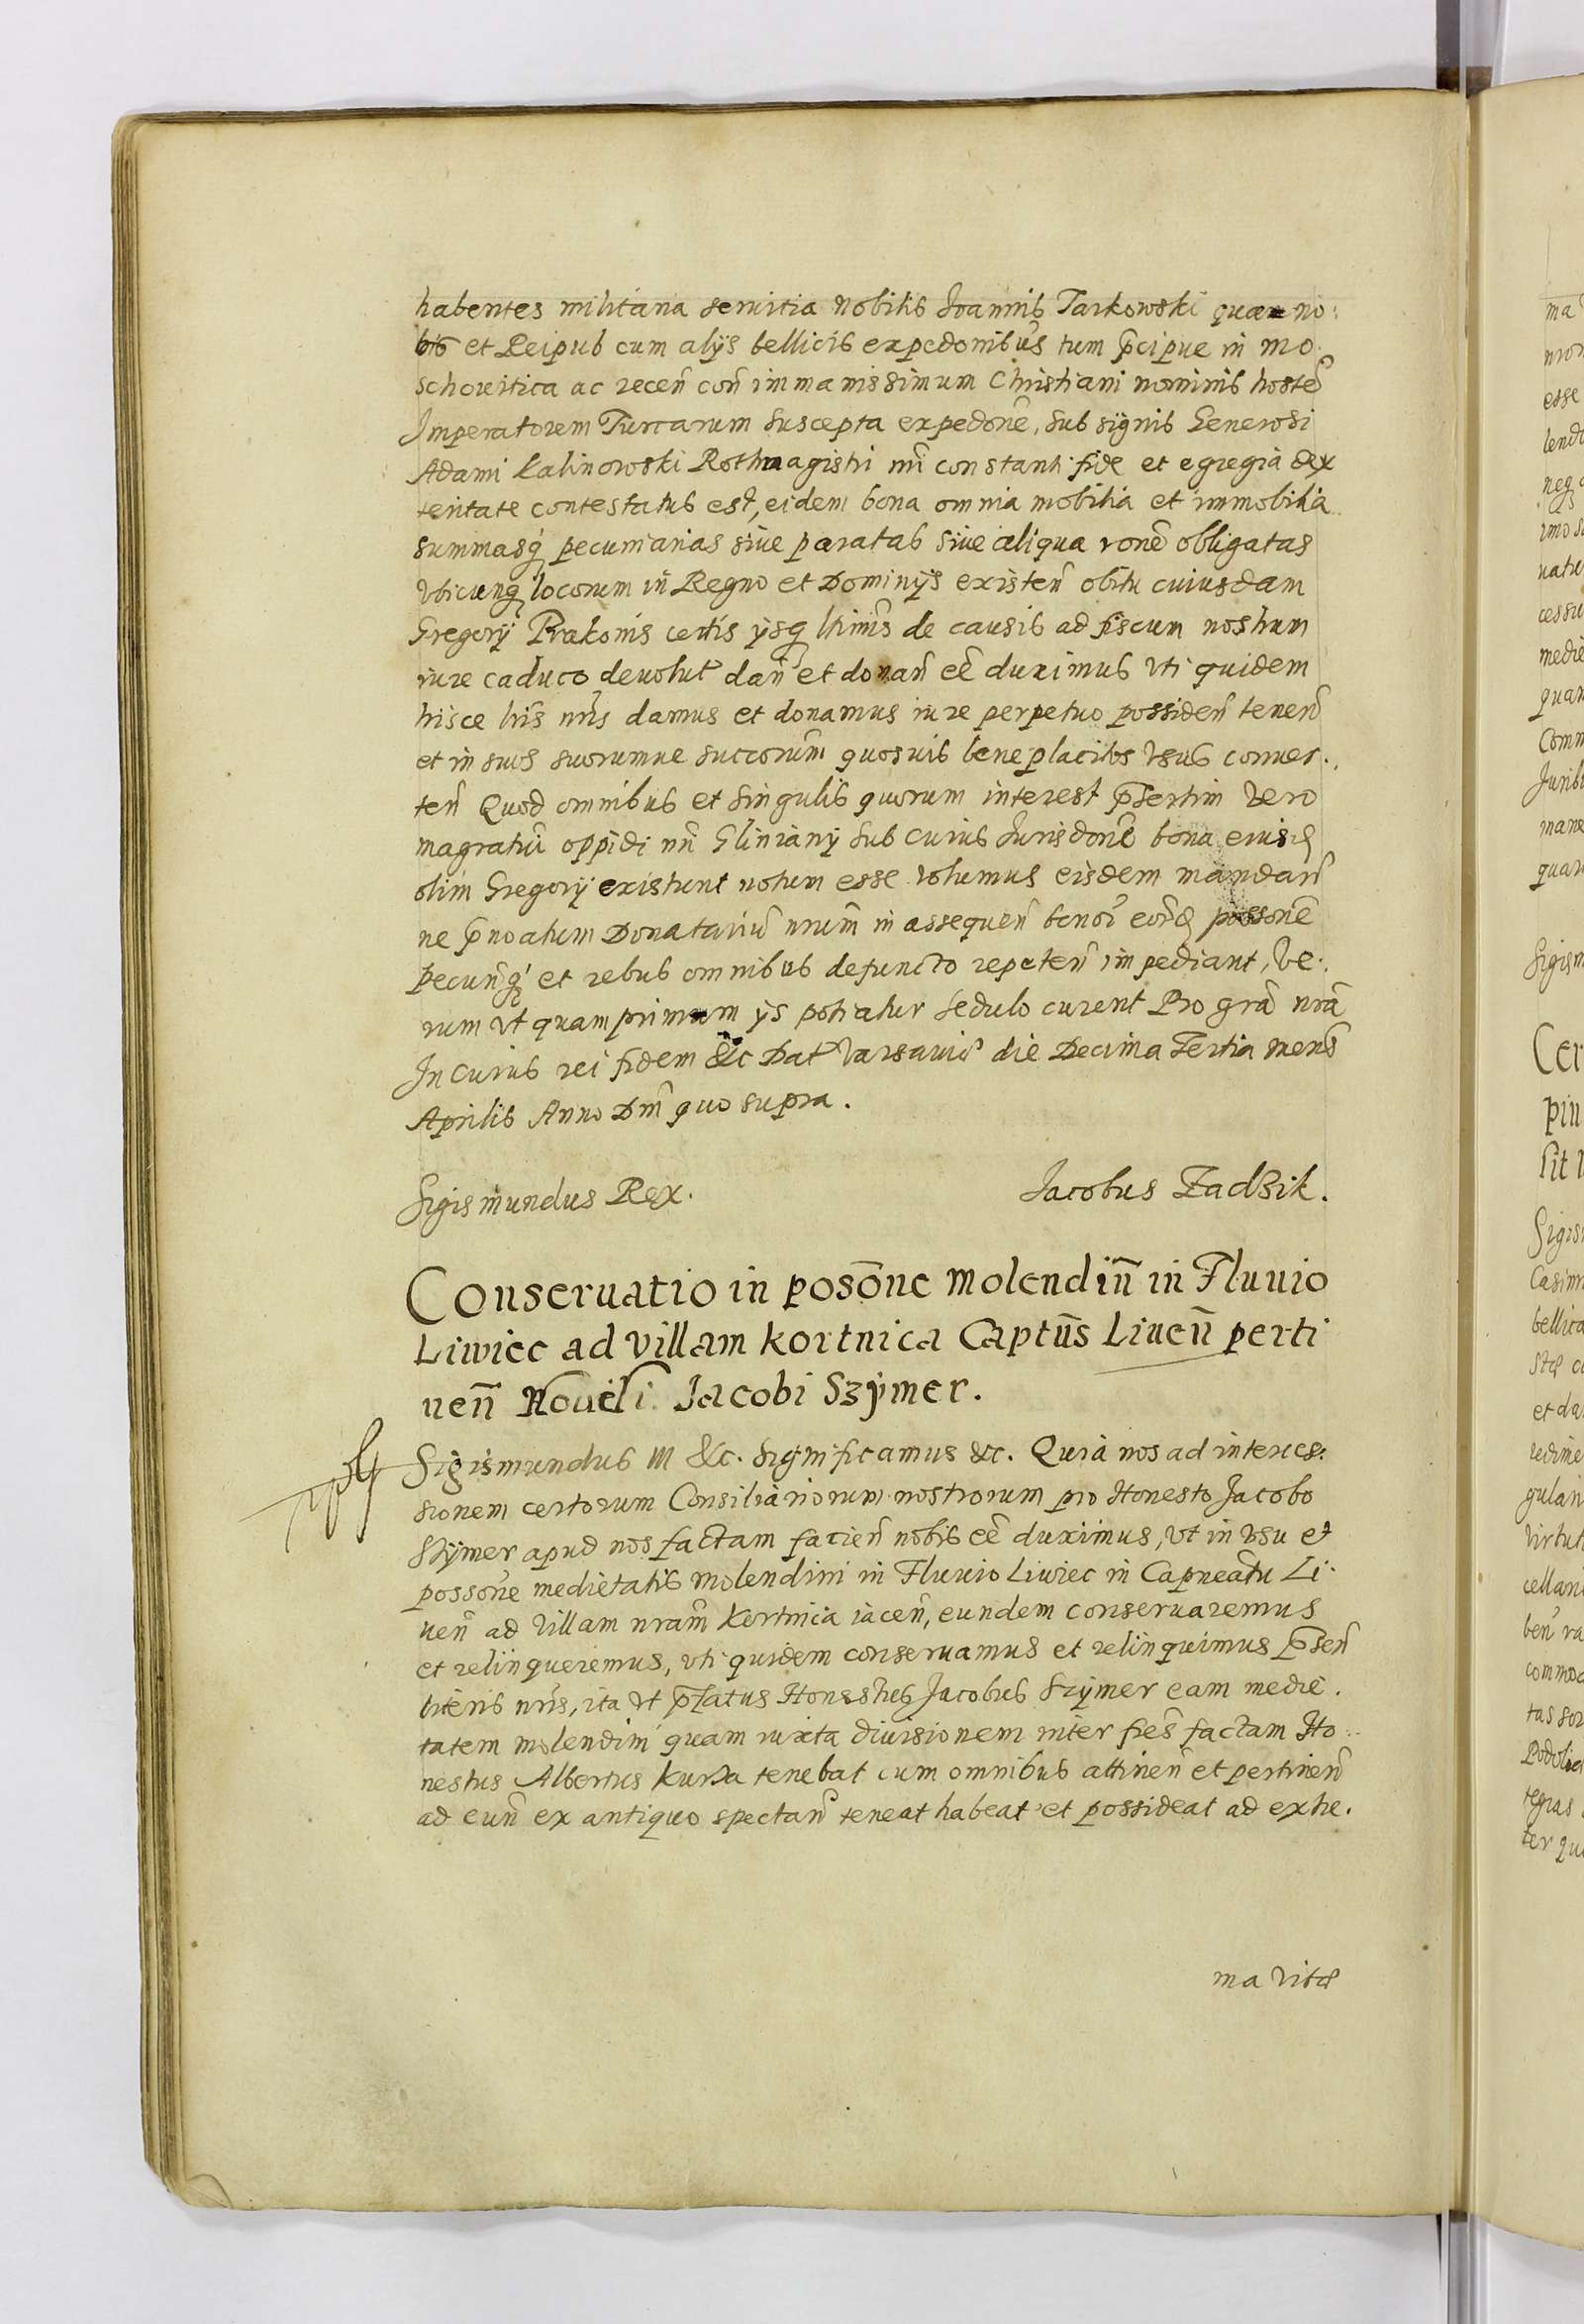 habentes militaria seruitia Nobilis Joannis Tarkowski quæ no:
bis et Reipub cum alÿs bellicis expedonibus tum p̃cipue in mo.
schouitica ac receñ coñ immanissimum Christiani nominis hostẽ
Imperatorem Turcarum suscepta expedonẽ, sub signis Generosi
Adami Kalinowski Rothmagistri nr̃i constanti fide et egregia dex
teritate contestatus est, eidem bona omnia mobilia et immobilia
summasq́ pecuniarias siue paratas siue aliqua ronẽ obligatas
vbicunq locorum in Regno et Dominÿs existeñ obitu cuiusdam
Gregorÿ Prakonis certis ÿsq ltimis̃ de causis ad fiscum nostrum
iure caduco deuolut dañ et donañ eẽ duximus vti quidem
hisce lrĩs nrĩs damus et donamus iure perpetuo possideñ teneñ
et in suos suorumue succorũm quosuis beneplacitos vsus conuer.,
teñ Quod omnibus et singulis quorum interest p̃sertim vero
magratui oppidi nr̃i Glinianÿ sub cuius Jurisdonẽ bona eiusd
olim Gregorÿ existunt notum esse volumus eisdem mandañ
ne p̃noatum Donatariũ nrum̃ in assequeñ bonor̃ eord̃ possonẽ
pecunq́ et rebus omnibus defuncto repeteñ impediant, Ve.
rum vt quam primum ÿs potiatur sedulo curent Pro grã nrã
In cuius rei fidem &c Dat Varsauiæ die Decima Tertia mens̃
Aprilis Anno Dnĩ quo supra.
Sigismundus Rex.
Jacobus Zadzik.
Conseruatio in posõne molendiñ in Fluuio
Liwiec ad villam Kortnica Captũs Liueñ perti
neñ Ho Jacobi Szÿmer.
Sigismundus III &c. Significamus &c. Quia nos ad interces:
sionem certorum Consiliariorum nostrorum pro Honesto Jacobo
Szÿmer apud nos factam facieñ nobis eẽ duximus, vt in vsu et
possonẽ medietatis molendini in Fluuio Liwiec in Capneatũ Li.
ueñ ad Villam nram̃ Kortnica iaceñ, eundem conseruaremus
et relinqueremus, vti quidem conseruamus et relinquimus p̃señ
literis nrĩs, ita vt p̃fatus Honestus Jacobus Szÿmer eam medie.
tatem molendini quam iuxta diuisionem inter frẽs factam Ho..
nestus Albertus Kurza tenebat cum omnibus attineñ et pertineñ
ad euñ ex antiquo spectañ teneat habeat et possideat ad extre.
ma vitæ